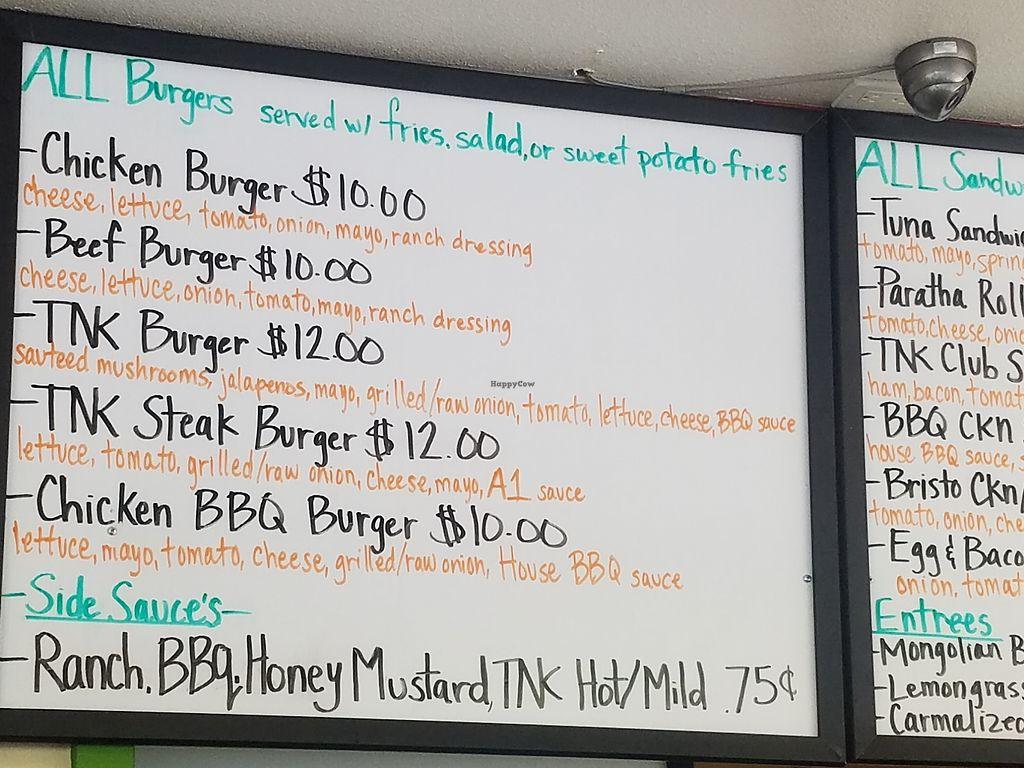 ALL Burgers served w/ fries, salad, or sweet potato fries
-Chicken Burger $10.00
cheese, lettuce, tomato, onion, mayo, ranch dressing
-Beef Burger $10.00
cheese, lettuce, onion, tomato, mayo, ranch dressing
-TNK Burger $12.00
sauteed mushrooms, jalapenos, mayo, grilled/raw onion, tomato, lettuce, cheese, BBQ sauce
-TNK Steak Burger $12.00
lettuce, tomato, grilled/raw onion, cheese, mayo, A1 sauce
-Chicken BBQ Burger $10.00
lettuce, mayo, tomato, cheese, grilled/raw onion, House BBQ sauce
-Side Sauce's-
-Ranch, BBQ, Honey Mustard, TNK Hot/Mild .75¢
HappyCow
ALL
-Tuna
tomato, mayo,
-Paratha
tomato, cheese,
-TNK Club
ham, bacon,
-BBQ CKn
house BBQ sauce,
-Bristo
tomato, onion,
-Egg &
onion,
Entrees
-Mongolian
-
-Carmalized